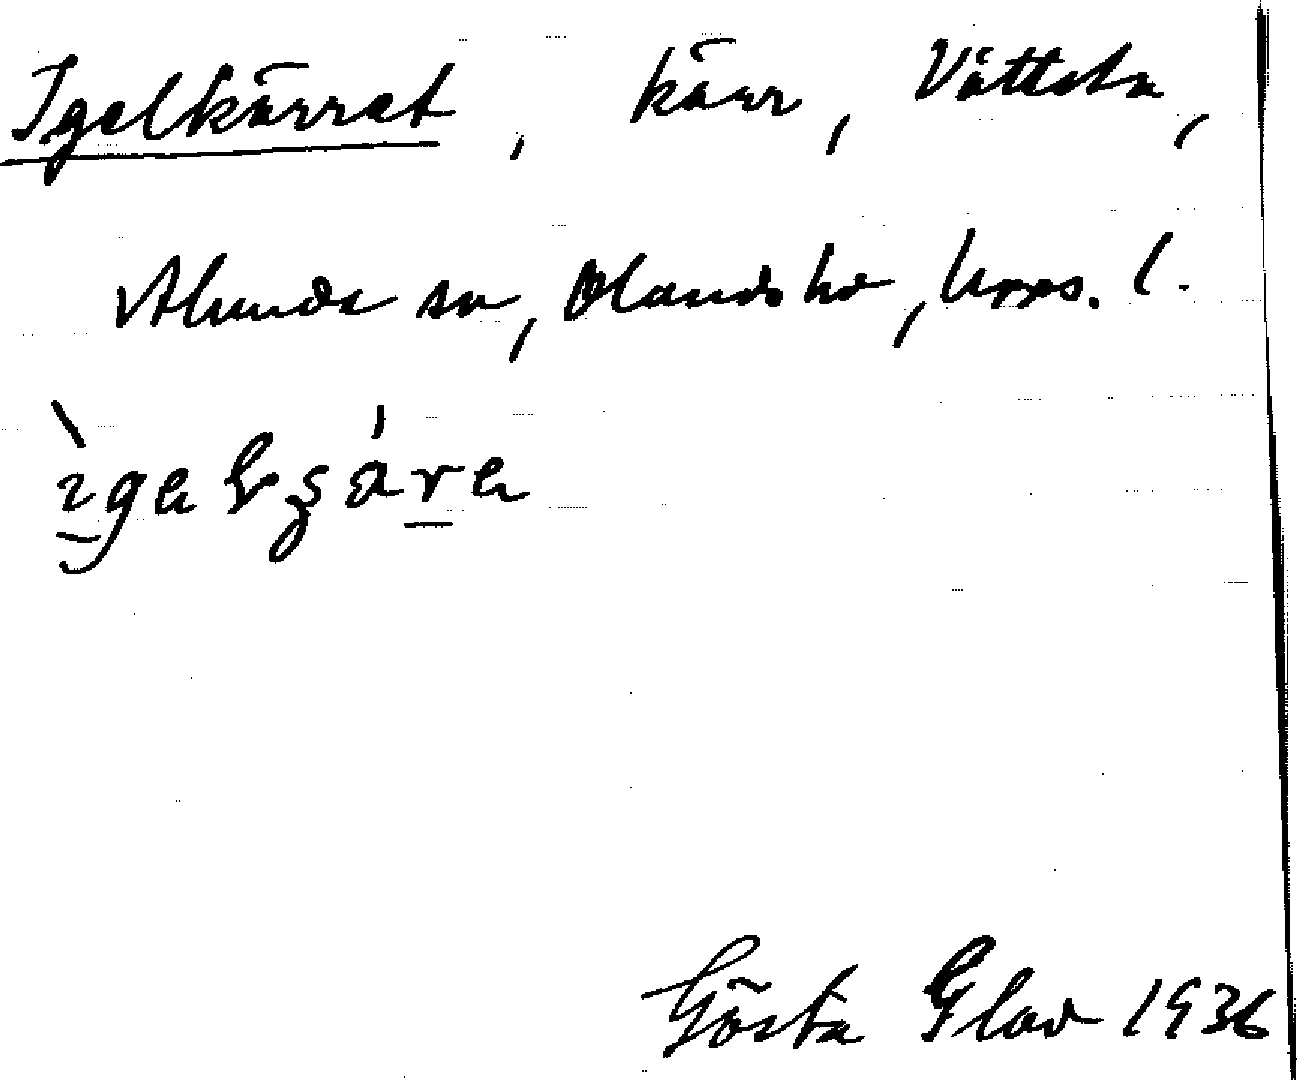 Igelkärret, kärr, Vättsta,
Alunda sn, Olands hd, Upps. l.
Gösta Glad 1936